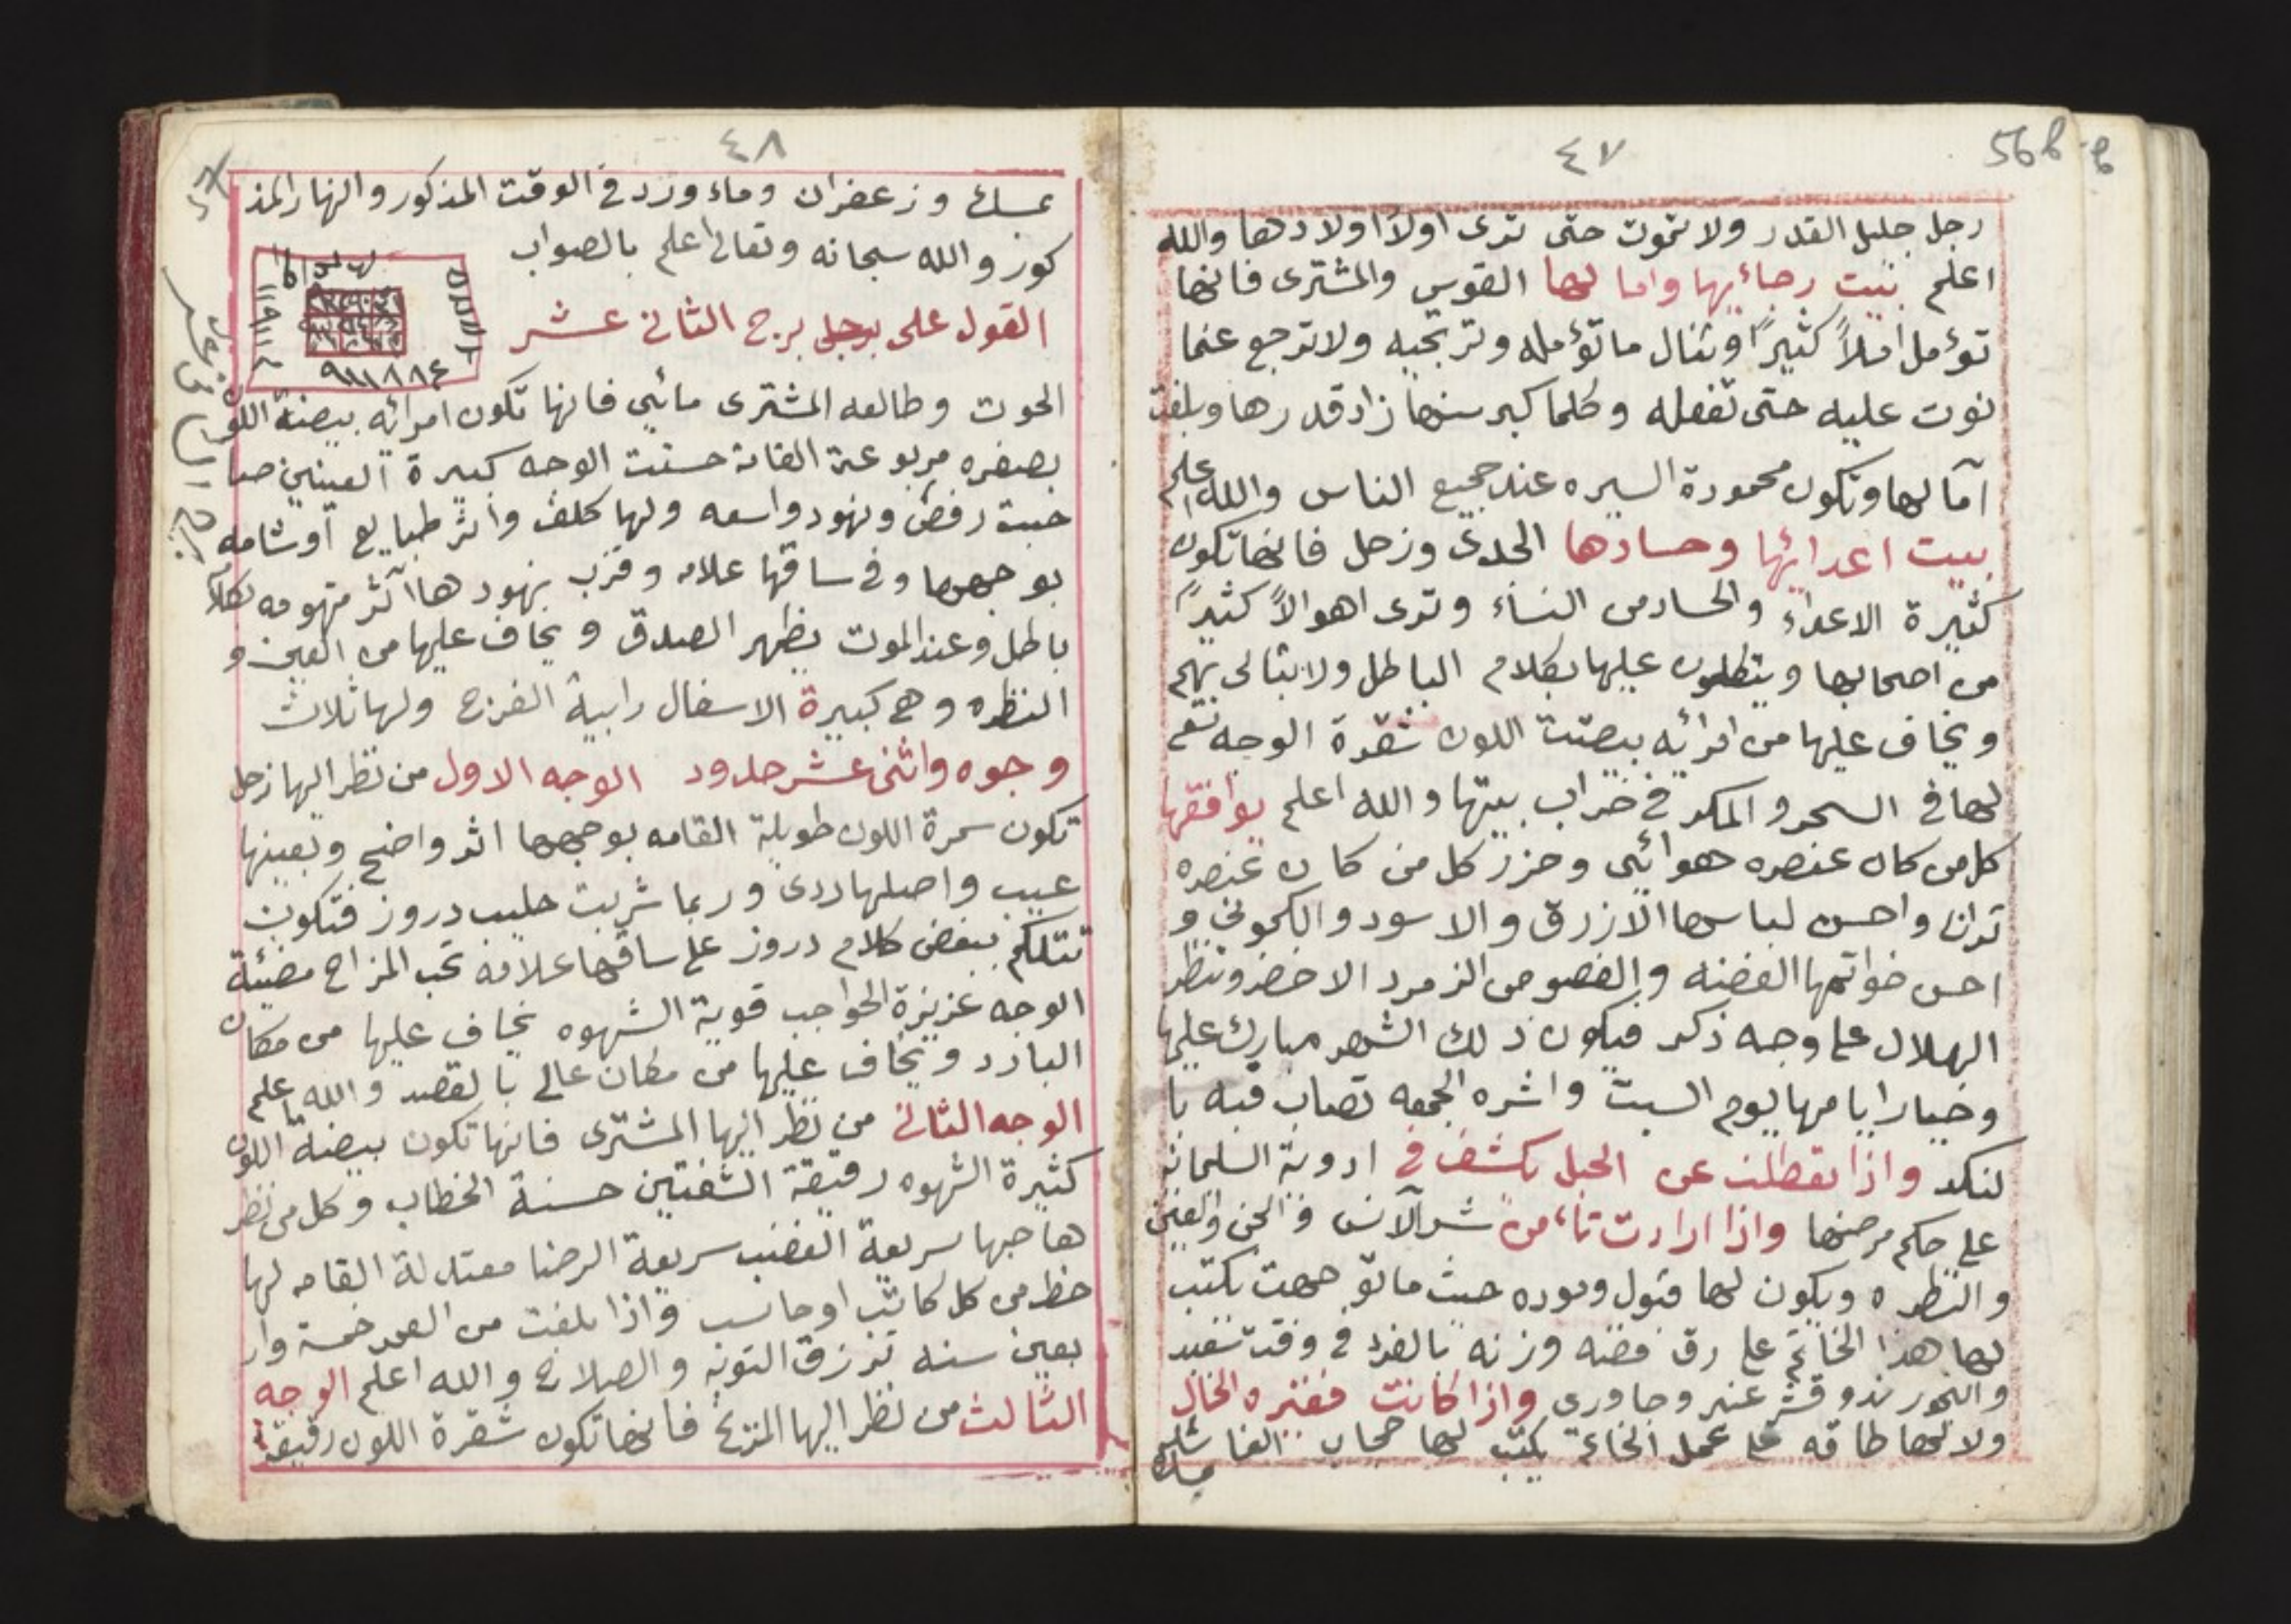 ٤٧
56b
رجل جليل القدر ولا تموت حتى ترى اولاً اولادها والله
اعلم بيت رجائها واما لها القوس والمشترى فانها
تؤمل املاً كثيراً وتنال ما تؤمله وتريجيه ولا ترجع عنما
نوت عليه حتى تفعله وكلما كبر سنها زاد قدرها وبلغت
آمالها وتكون محمودة السيره عند جميع الناس والله اعلم
بيت اعدائها وحسادها الجدى وزحل فانها تكون
كثيرة الاعداء والحساد من النساء وترى اهوالاً كثيراً
من اصحابها ويتكلمون عليها بكلام الباطل ولا تبالى بهم
ويخاف عليها من امرأئه بيضت اللون شقرة الوجه تسعى
لها فى السحر والمكر فى خراب بيتها والله اعلم يوافقها
كل من كان عنصره هوائى وحزر كل من كان عنصره
ترابى واحسن لباسها الازرق والاسود والكمونى و
احسن خواتمها الفضه والفصوص الزمرد الاخضر وتنظر
الهلال على وجه ذكر فيكون ذلك الشهر مبارك عليها
وخيار ايامها يوم السبت واشره الجمعه تصاب فيه با
لنكد واذا تعطلت عن الحبل يكشف فى ادوية السلمانه
على حكم مرضها واذا ارادت تاءمن شر الآنس و الجن والعين
والنظره ويكون لها قبول وموده حيث ما توجهت يكتب
لها هذا الخاتم على رق فضه وزنه بالفرد فى وقت سعيد
والبخور ند وقشر عنبر وجاورى واذا كانت فقيره الحال
ولا لها طاقه على عمل الخاتم يكتب لها حجاب الفا
بمسك
٤٨
57
بمسك وزعفران وماء ورد فى الوقت المذكور والنهار المذ
كور والله سبحانه وتعالى اعلم بالصواب
القول على برج الثانى عشر
٩١١١٨٨٤
الحوت وطالعه المشترى مائي فانها تكون امرائه بيضة اللون
بصفره مربوعة القامة حسنت الوجه كبيرة العينين صا
حبت رفض ونهود واسعه ولها كلف واثر طبايع أوشامه
بوجهها وفى ساقها علامه وقرب نهودها آثر متهومه بكلام
باطل وعند الموت يظهر الصدق ويخاف عليها من العين و
النظره وهى كبيرة الاسفال رابية الفرج ولها ثلاث
وجوه واثنى عشر حدود الوجه الاول من نظر اليها زحل
تكون سمرة اللون طويلة القامه بوجهها اثر واضح وبعينها
عيب واصلها ردى وربما شربت حليب دروز فتكون
تتلكم ببعض كلام دروز على ساقها علامه تحب المزاح مضيئة
الوجه غزيزة الحواجب قوية الشهوه يخاف عليها من مكان
البارد ويخاف عليها من مكان عالى بالقصد والله اعلم
الوجه الثانى من نظر اليها المشترى فانها تكون بيضة اللون
كثيرة الشهوه رقيقة الشفتين حسنة الخطاب وكل من نظر
ها حبها سريعة الغضب سريعة الرضا معتدلة القامه لها
حظ من كل كاتب او حاسب واذا بلغت من العمر خمسة وار
بعين سنه ترزق التوبه والصلاح والله اعلم الوجه
الثالث من نظر اليها المريخ فانها تكون شقرة اللون رقيقة